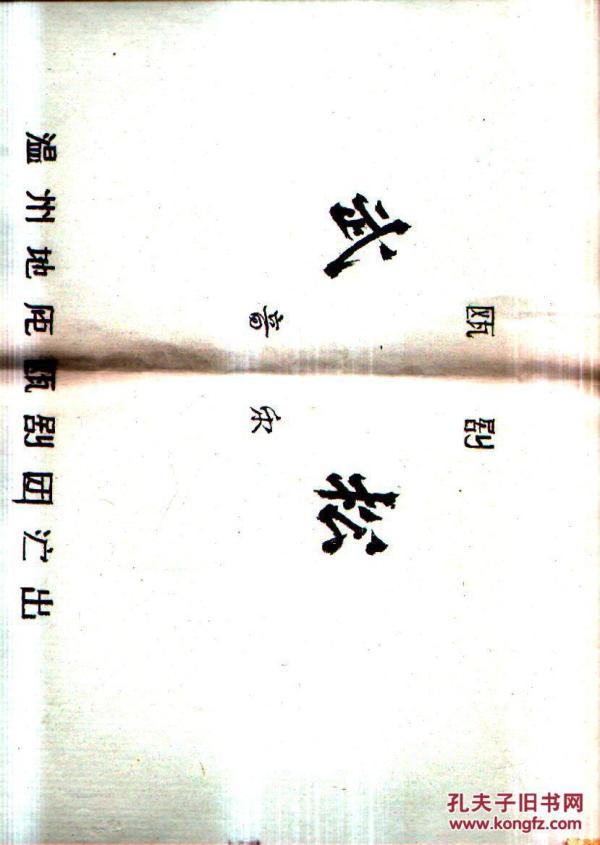 瓯剧
武松
温州地区瓯剧团演出
孔夫子旧书网
www.kongfz.com